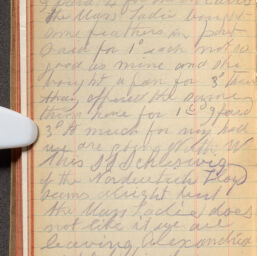 the Mays Ladie bought
some feathers in Port
Said for 1s each not so
good as mine and she
bought a fan for 3s
they offered the same
them none for 1s 6d I paid
3s to much for my
we are going with the
this SS Schleswig
of the Nordeutsch Lloyd
seems alright but
the Mays Ladie does
not like it we are
leaving Alexandria